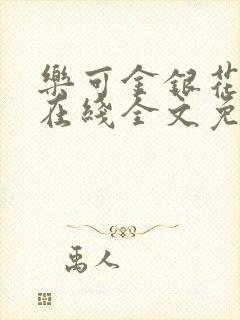 樂可金銀花
在綫全文免
禹人